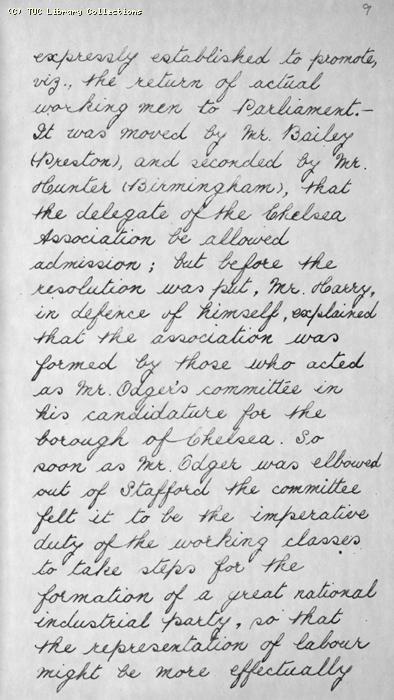 (C) TUC Library Collections
9
expressly established to promote,
viz., the return of actual
working men to Parliament.-
It was moved by Mr. Bailey
(Preston), and seconded by Mr.
Hunter (Birmingham), that
the delegate of the Chelsea
Association be allowed
admission; but before the
resolution was put, Mr. Harry,
in defence of himself, explained
that the association was
formed by those who acted
as Mr. Odger's committee in
his candidature for the
borough of Chelsea. So
soon as Mr. Odger was elbowed
out of Stafford the committee
felt it to be the imperative
duty of the working classes
to take steps for the
formation of a great national
industrial party, so that
the representation of labour
might be more effectually